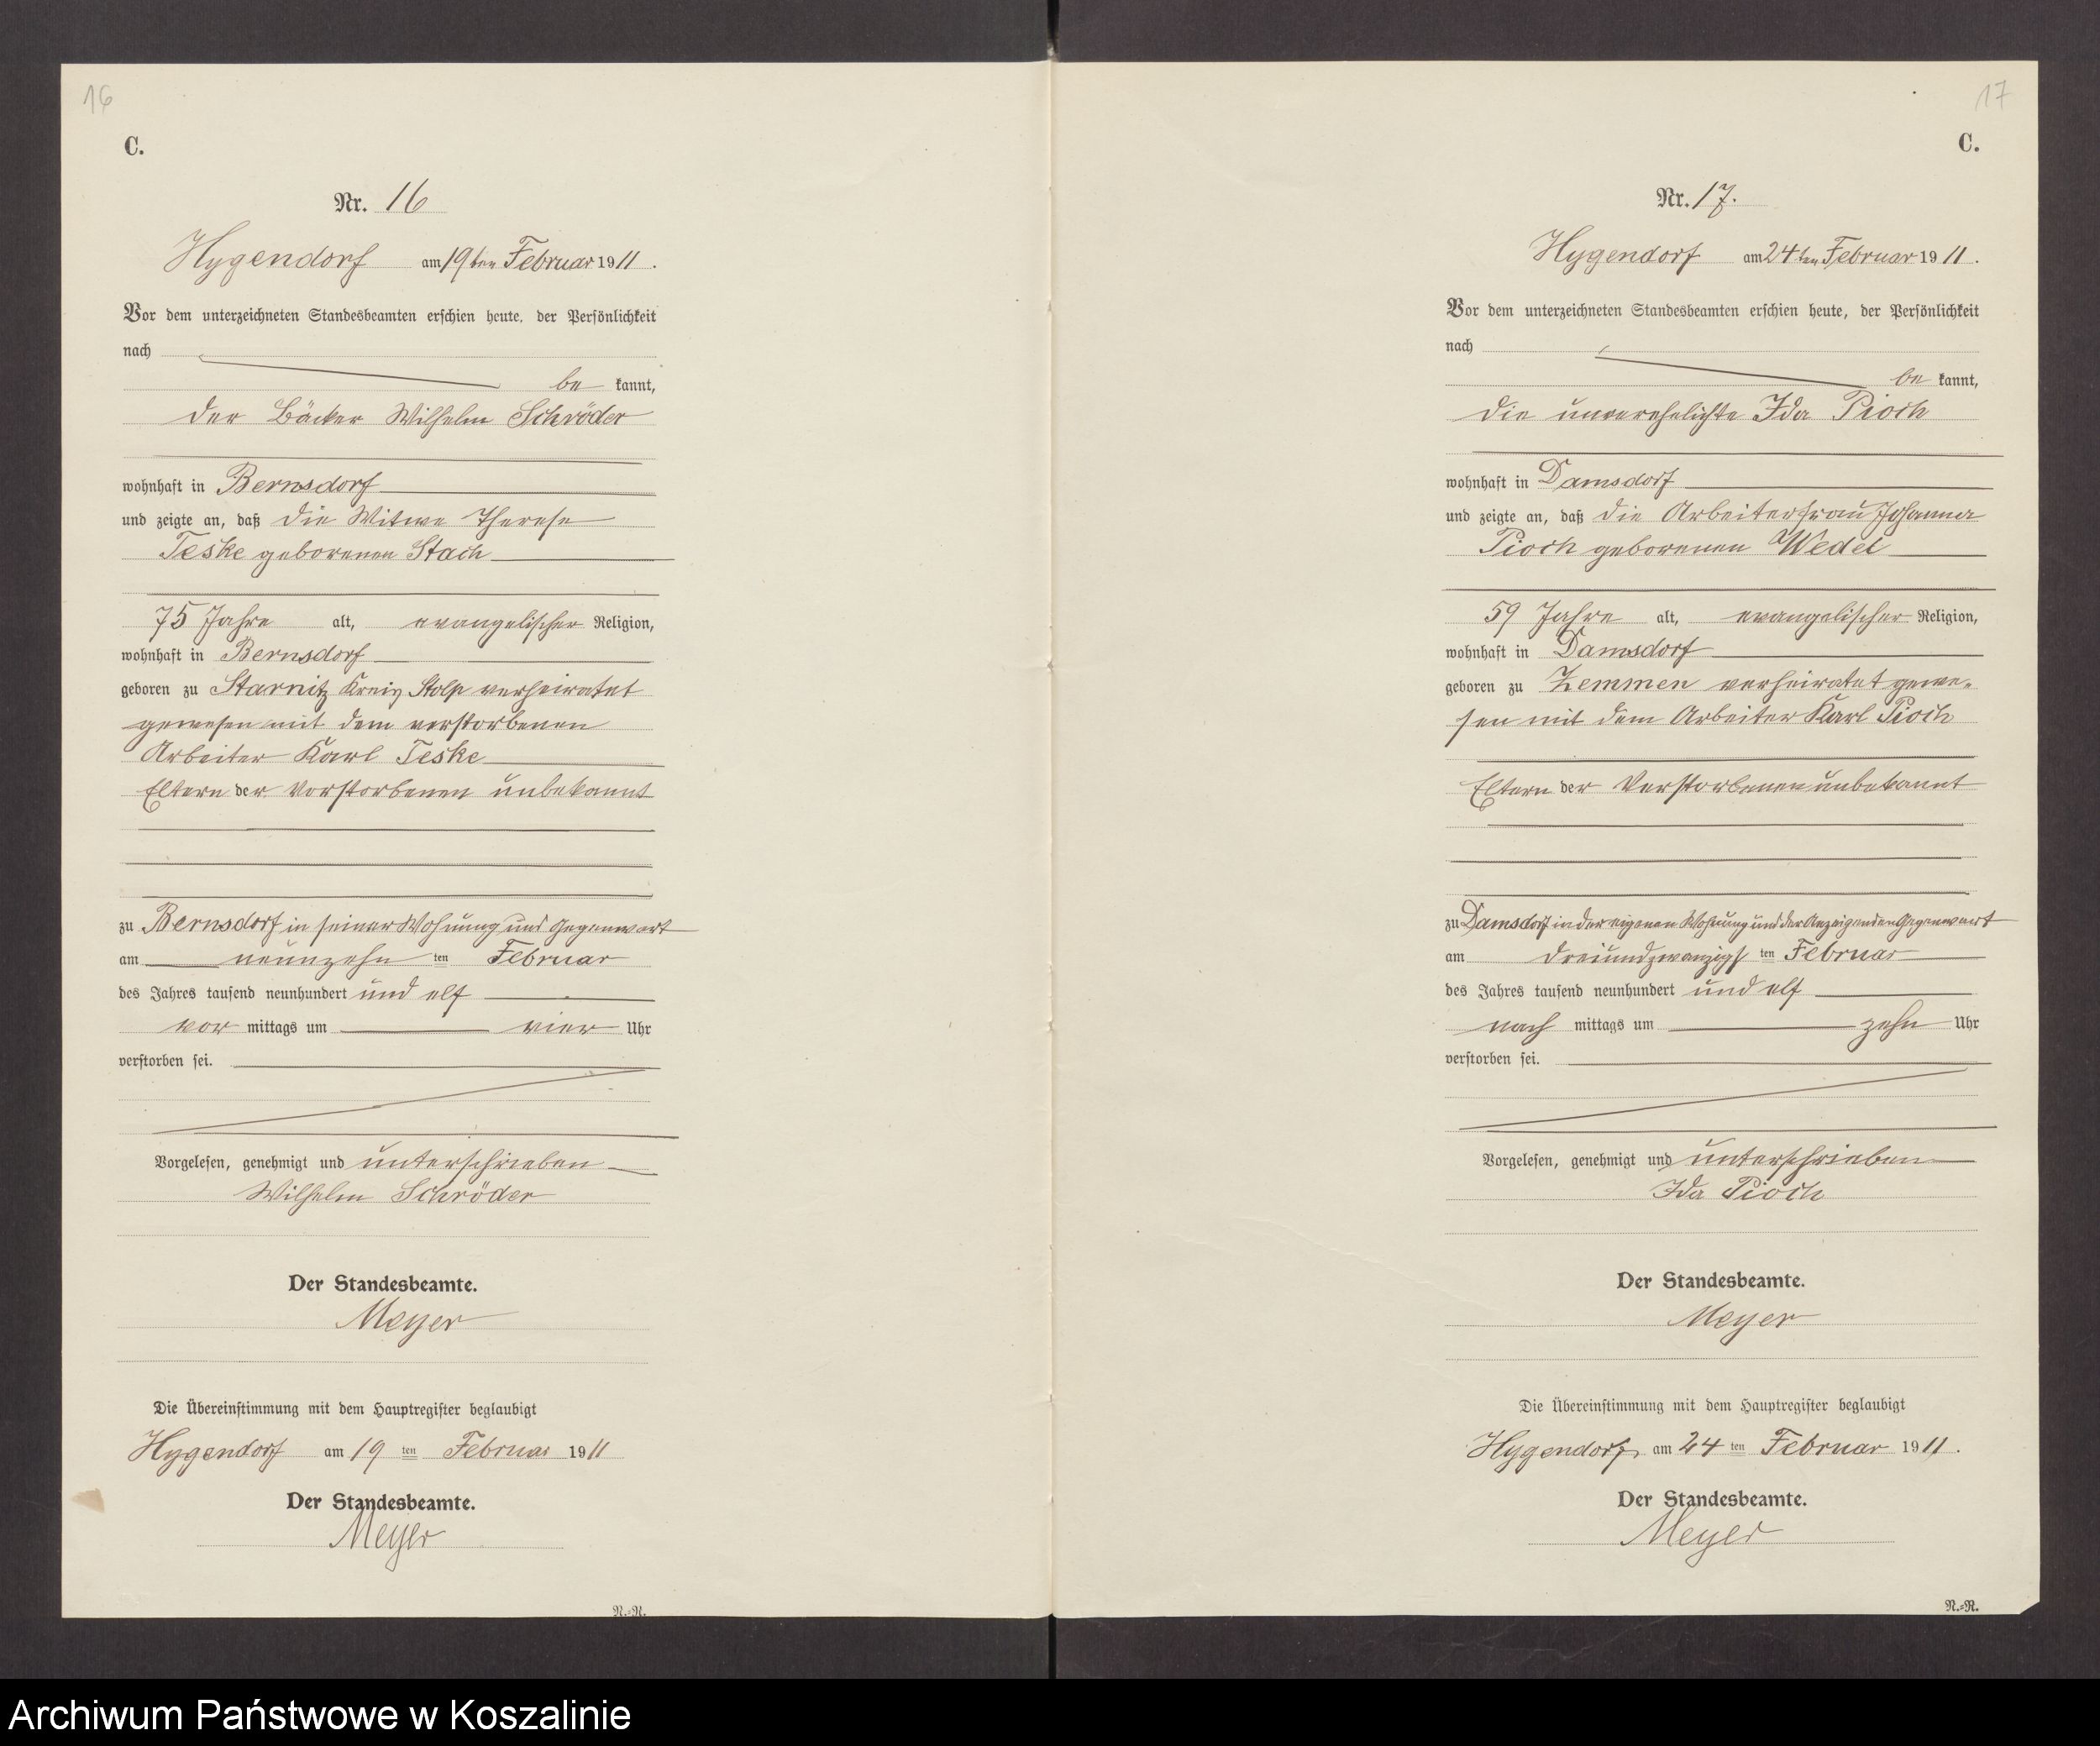 16
C.
Nr. 16
Hygendorf am 19ten Februar 1911.
Vor dem unterzeichneten Standesbeamten erschien heute, der Persönlichkeit
nach
be kannt,
der Bäcker Wilhelm Schröder
wohnhaft in Bernsdorf
und zeigte an, daß die Witwe Therese
Teske geborenen Stach
75 Jahre alt, evangelischer Religion,
wohnhaft in Bernsdorf
geboren zu Starnitz Kreis Stolp verheiratet
gewesen mit dem verstorbenen
Arbeiter Karl Teske
Eltern der Verstorbenen unbekannt
zu Bernsdorf in seiner Wohnung und Gegenwart
am neunzehn ten Februar
des Jahres tausend neunhundert und elf
vor mittags um vier Uhr
verstorben sei.
Vorgelesen, genehmigt und unterschrieben
Wilhelm Schröder
Der Standesbeamte.
Meyer
Die Übereinstimmung mit dem Hauptregister beglaubigt
Hygendorf am 19 ten Februar 1911
Der Standesbeamte.
Meyer
N.=R.
17
C.
Nr. 17.
Hygendorf am 24ten Februar 1911.
Vor dem unterzeichneten Standesbeamten erschien heute, der Persönlichkeit
nach
be kannt,
die unverehelichte Ida Pioch
wohnhaft in Damsdorf
und zeigte an, daß die Arbeiterfrau Johanna
Pioch geborenen Wedel
59 Jahre alt, evangelischer Religion,
wohnhaft in Damsdorf
geboren zu Zemmen verheiratet gewe-
sen mit dem Arbeiter Karl Pioch
Eltern der Verstorbenen unbekannt
zu Damsdorf in der eigenen Wohnung und der Anzeigenden Gegenwart
am dreiundzwanzigs ten Februar
des Jahres tausend neunhundert und elf
nach mittags um zehn Uhr
verstorben sei.
Vorgelesen, genehmigt und unterschrieben
Ida Pioch
Der Standesbeamte.
Meyer
Die Übereinstimmung mit dem Hauptregister beglaubigt
Hygendorf am 24 ten Februar 1911.
Der Standesbeamte.
Meyer
N.=R.
Archiwum Państwowe w Koszalinie